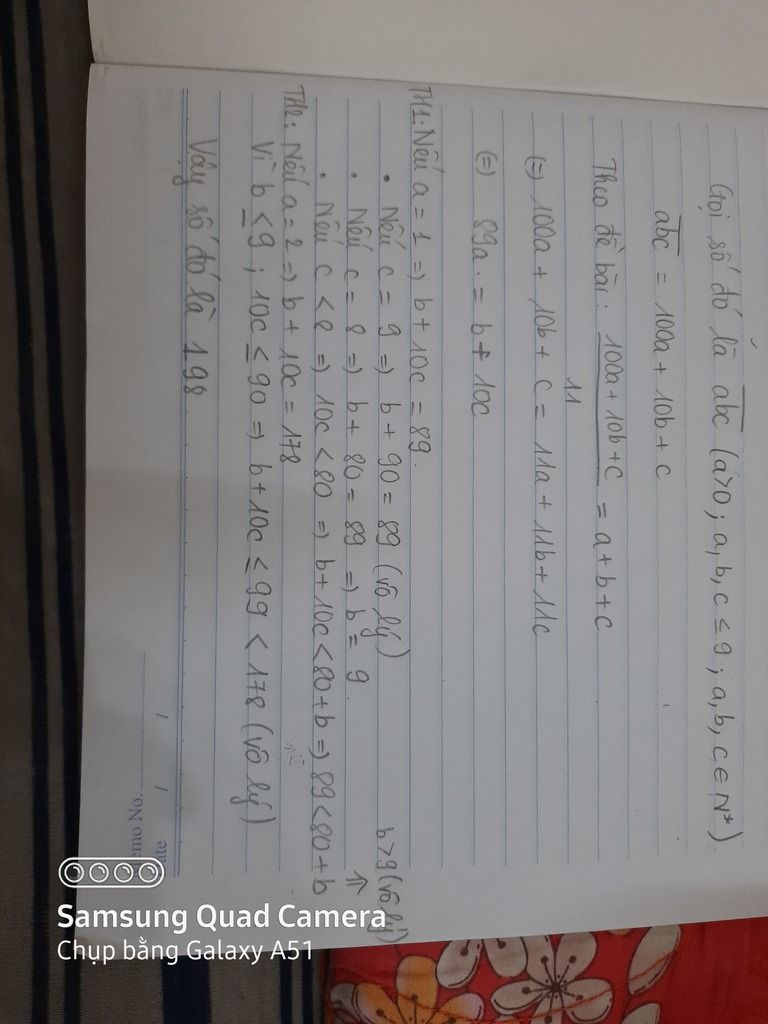 Gọi số đó là abc (a>0; a,b,c ≤ 9; a,b,c ∈ N*)
abc = 100a + 10b + c
Theo đề bài: 100a + 10b + c / 11 = a + b + c
(=) 100a + 10b + c = 11a + 11b + 11c
(=) 89a = b + 10c
TH1: Nếu a = 1 => b + 10c = 89.
• Nếu c = 9 => b + 90 = 89 (vô lý)
• Nếu c = 8 => b + 80 = 89 => b = 9.
• Nếu c < 8 => 10c < 80 => b + 10c < 80 + b => 89 < 80 + b
⇒ b > 9 (vô lý)
TH2: Nếu a = 2 => b + 10c = 178
Vì b ≤ 9; 10c ≤ 90 => b + 10c ≤ 99 < 178 (vô lý)
Vậy số đó là 198
emo No.
ate / /
Samsung Quad Camera
Chụp bằng Galaxy A51